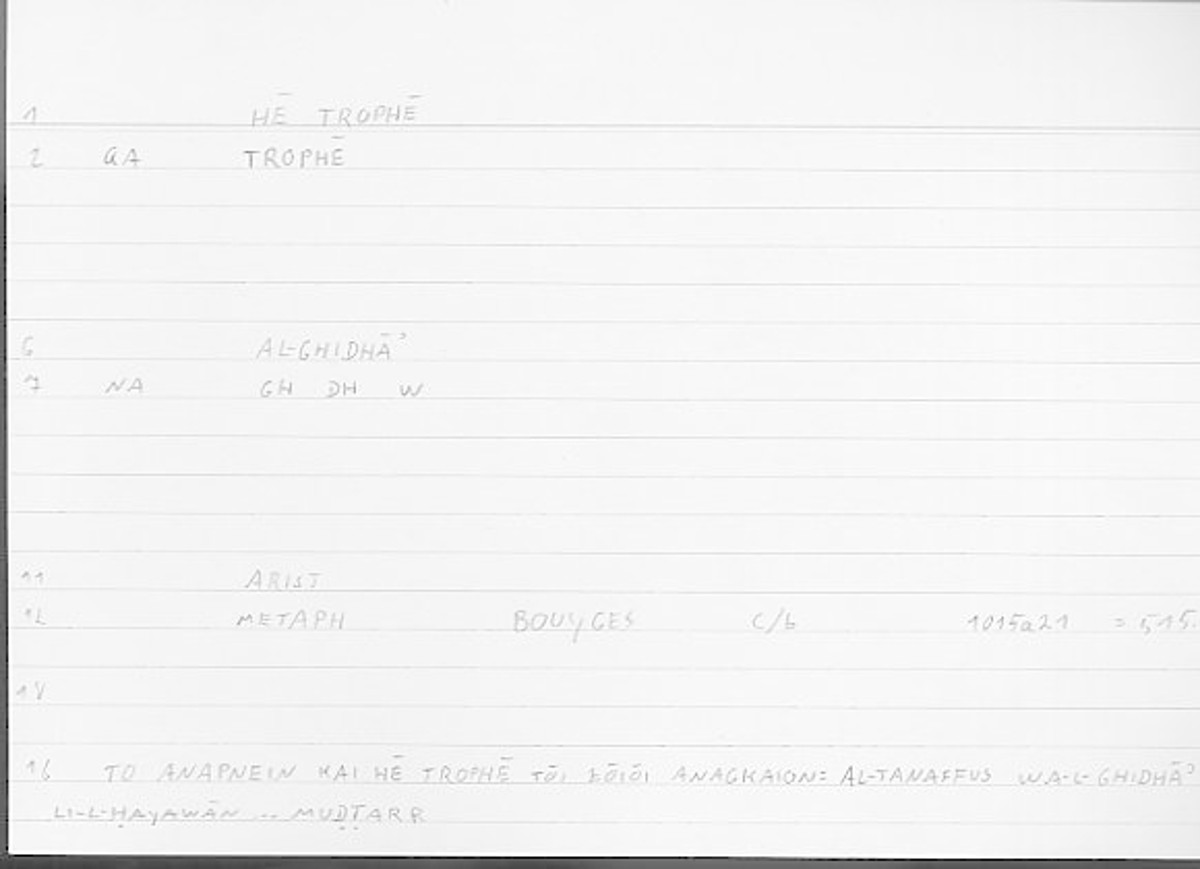 1 HĒ TROPHĒ
2 GA TROPHĒ
6 AL-GHIDHĀʾ
7 NA GH DH W
11 ARIST
12 METAPH BOUYGES C/b 1015a21 = 515.
14
16 TO ANAPNEIN KAI HĒ TROPHĒ TŌI ZŌIŌI ANAGKAION: AL-TANAFFUS WA-L-GHIDHĀʾ
LI-L-ḤAYAWĀN .. MUḌṬARR